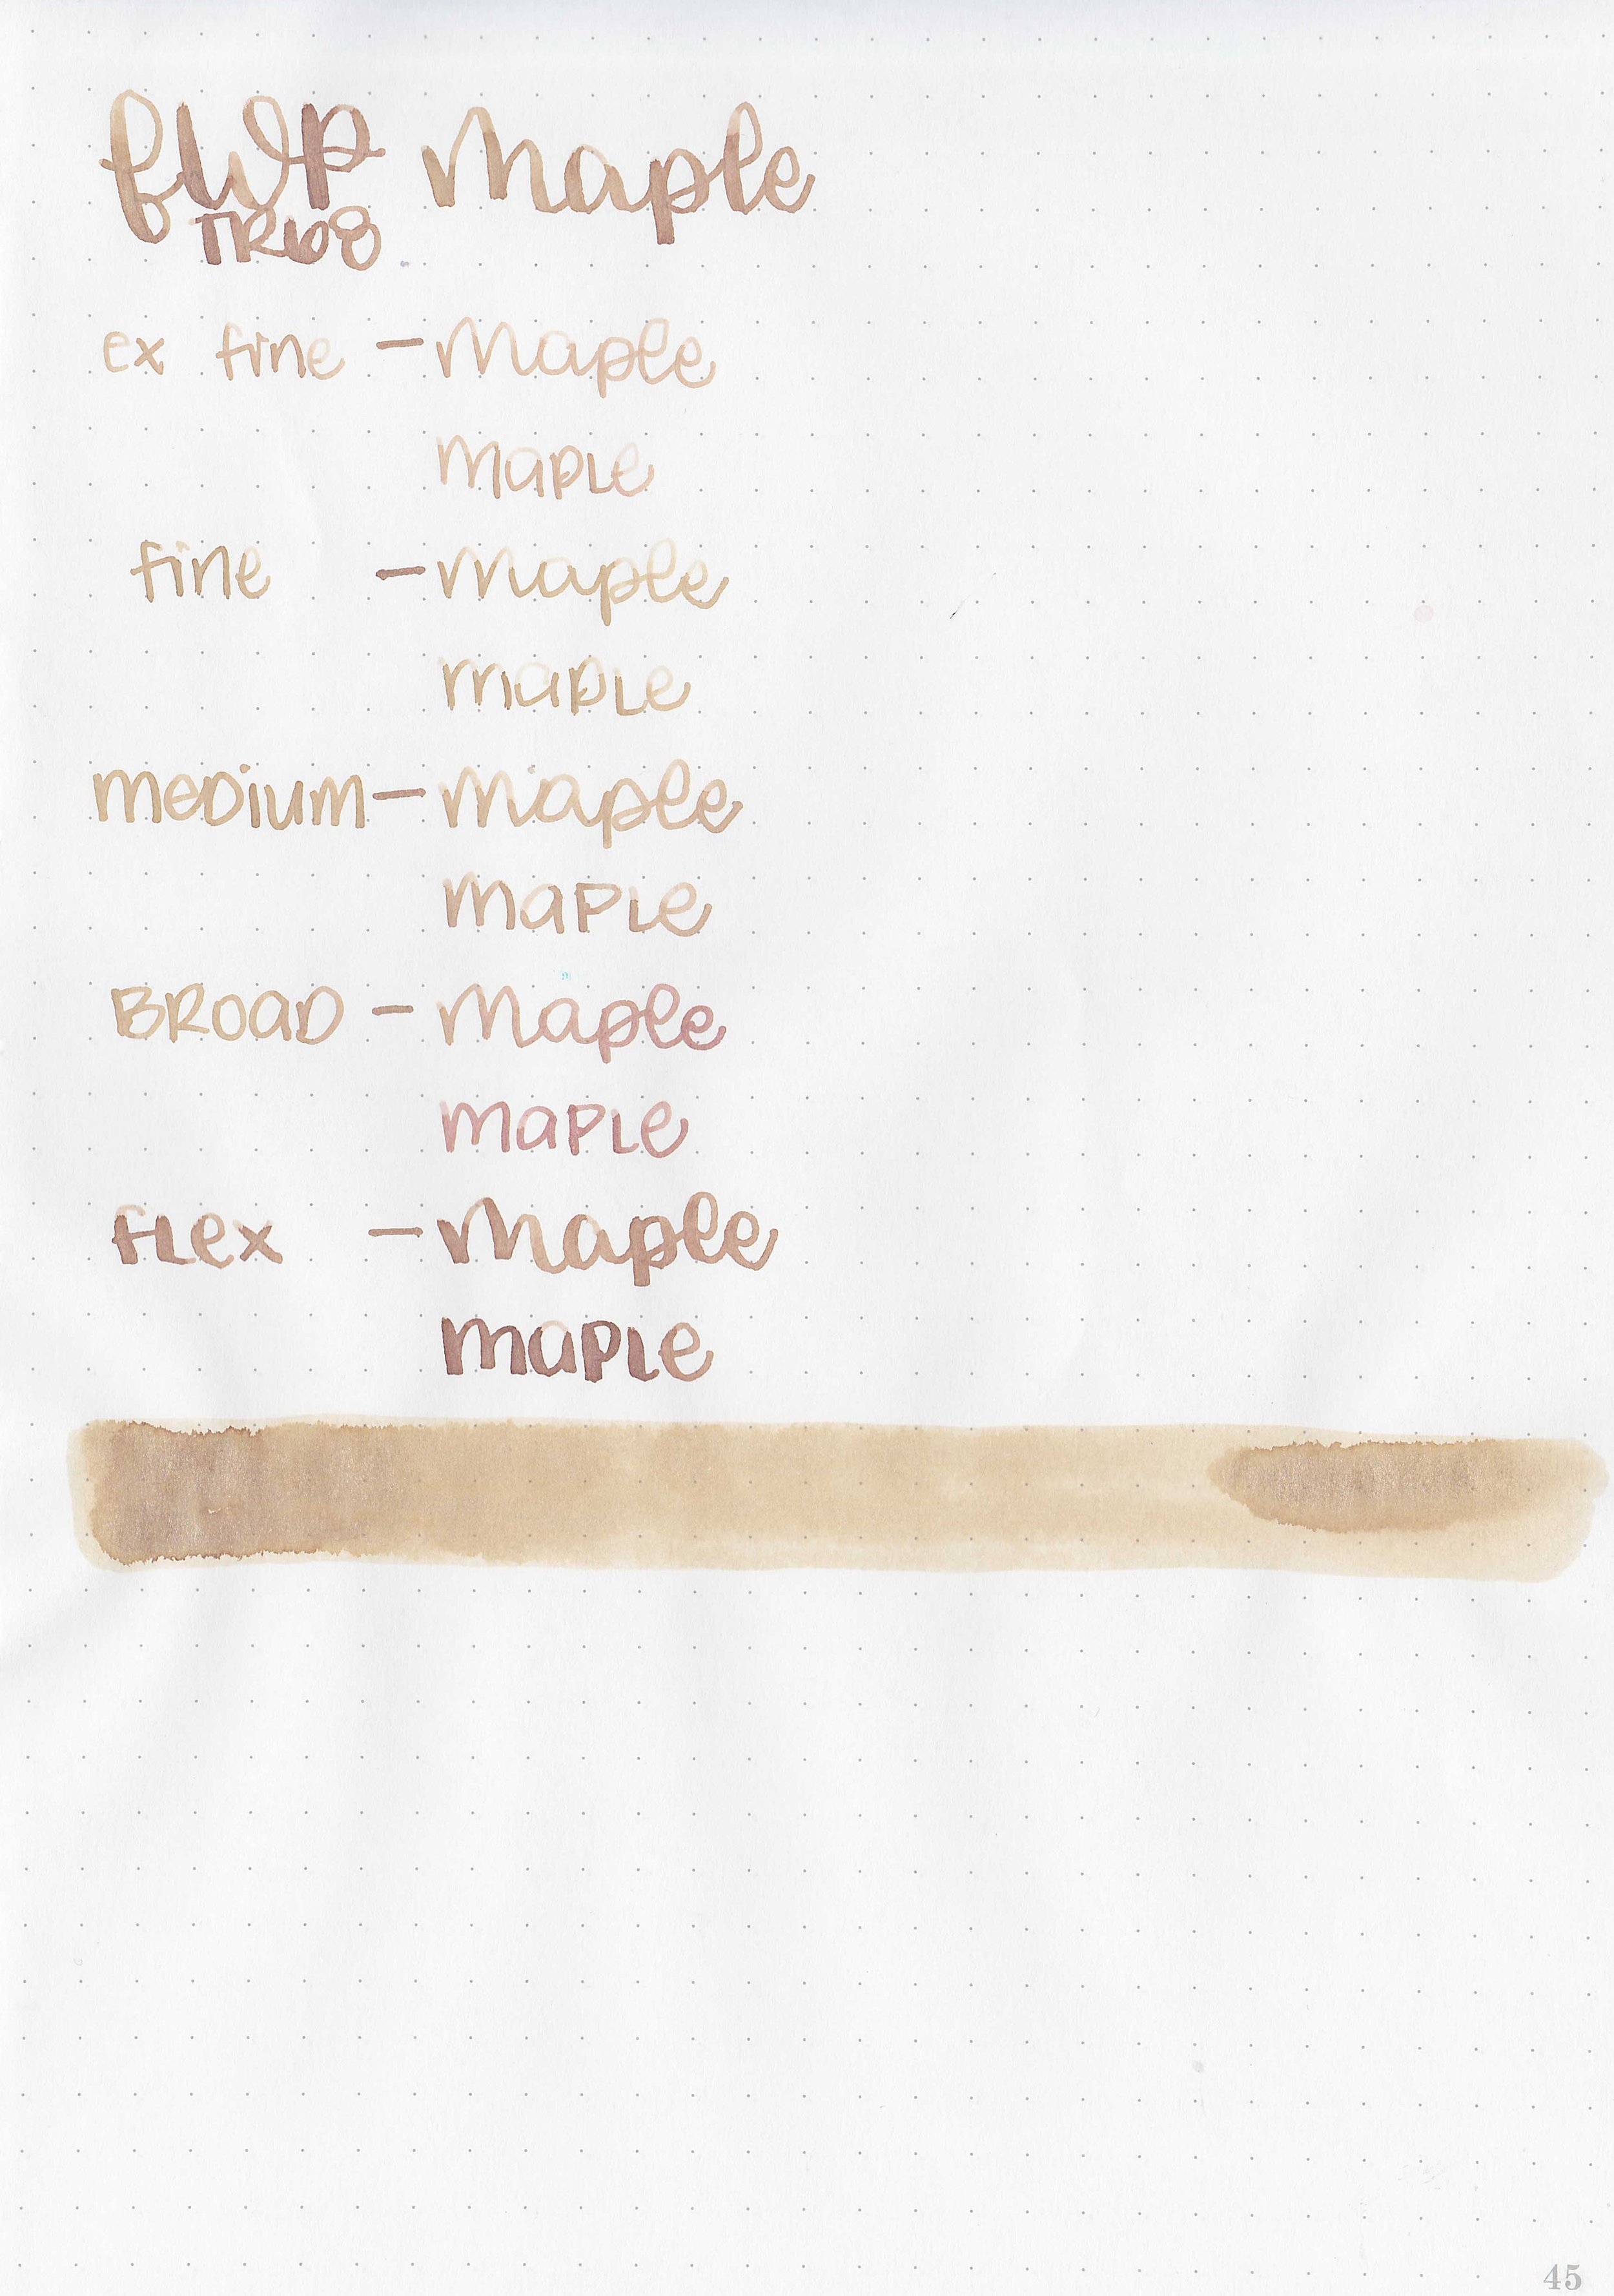 FWP Maple
TR68
ex fine - Maple
maple
fine - Maple
maple
medium - Maple
maple
BROAD - Maple
maple
flex - Maple
maple
45